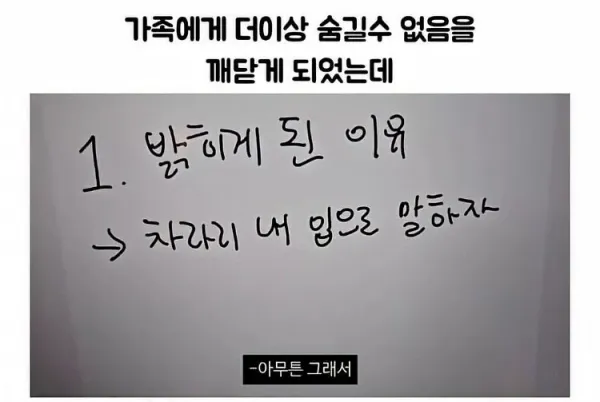 가족에게 더이상 숨길수 없음을
깨닫게 되었는데
1. 밝히게 된 이유
→ 차라리 내 입으로 말하자
-아무튼 그래서